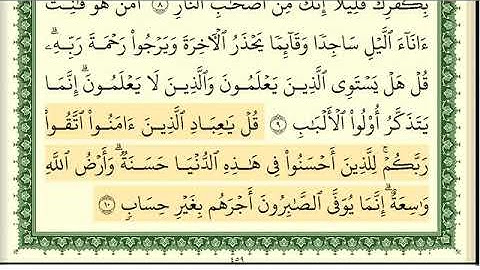 بِكُفْرِكَ قَلِيلًا إِنَّكَ مِنْ أَصْحَٰبِ ٱلنَّارِ ۝٨ أَمَّنْ هُوَ قَٰنِتٌ
ءَانَآءَ ٱلَّيْلِ سَاجِدًا وَقَآئِمًا يَحْذَرُ ٱلْءَاخِرَةَ وَيَرْجُوا۟ رَحْمَةَ رَبِّهِۦۗ
قُلْ هَلْ يَسْتَوِى ٱلَّذِينَ يَعْلَمُونَ وَٱلَّذِينَ لَا يَعْلَمُونَۗ إِنَّمَا
يَتَذَكَّرُ أُو۟لُوا۟ ٱلْأَلْبَٰبِ ۝٩ قُلْ يَٰعِبَادِ ٱلَّذِينَ ءَامَنُوا۟ ٱتَّقُوا۟
رَبَّكُمْۚ لِلَّذِينَ أَحْسَنُوا۟ فِى هَٰذِهِ ٱلدُّنْيَا حَسَنَةٌۗ وَأَرْضُ ٱللَّهِ
وَٰسِعَةٌۗ إِنَّمَا يُوَفَّى ٱلصَّٰبِرُونَ أَجْرَهُم بِغَيْرِ حِسَابٍ ۝١٠
٤٥٩